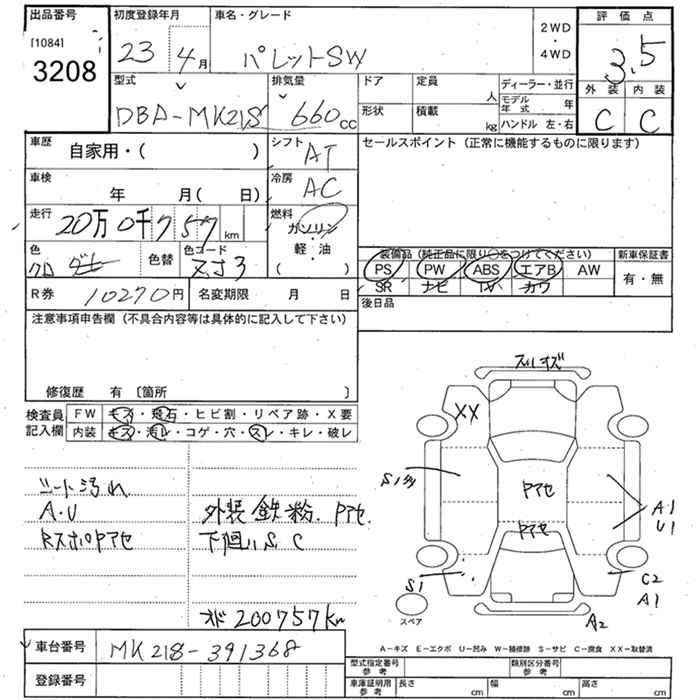 出品番号 初度登録年月 車名・グレード 評価点
[1084]
3208 23 4月 パレットSW 2WD・4WD 3.5
型式 排気量 ドア 定員 人 ディーラー・並行 外装 内装
DBA-MK21S 660cc 形状 積載 kg モデル年式 年 C C
ハンドル 左・右
車歴 自家用・( ) シフト AT セールスポイント (正常に機能するものに限ります)
車検 年 月( 日) 冷房 AC
走行 20万0千757km 燃料 ガソリン・軽・油( )
色 クロ 色替 色コード ZJ3 装備品(純正品に限り○をつけてください) 新車保証書
PS PW ABS エアB AW 有・無
SR ナビ TV カワ
R券 10270円 名変期限 月 日 後日品
注意事項申告欄(不具合内容等は具体的に記入して下さい)
修復歴 有 〔箇所 〕
検査員記入欄 FW キズ・飛石・ヒビ割・リペア跡・X要
内装 キズ・汚レ・コゲ・穴・スレ・キレ・破レ
シート汚れ
A・U 外装鉄粉.Pアセ.
RスポPアセ 下廻りS.C
メーター 200757km
車台番号 MK21S-391368
登録番号
XX
S1
Pアセ
Pアセ
A1
U1
S1
C2
A1
A2
スペア
A-キズ E-エクボ U-凹み W-補修跡 S-サビ C-腐食 XX-取替済
型式指定番号参考 類別区分番号参考
車庫証明用参考 長さ cm 幅 cm 高さ cm